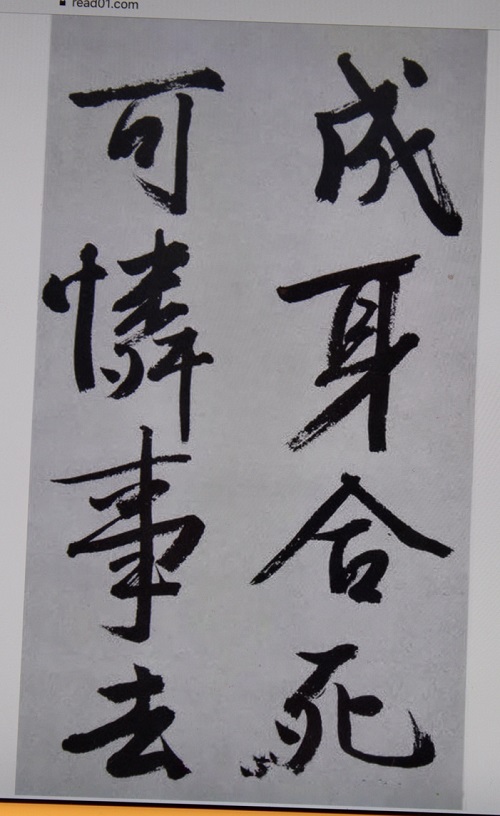 read01.com
成身合死
可憐事去